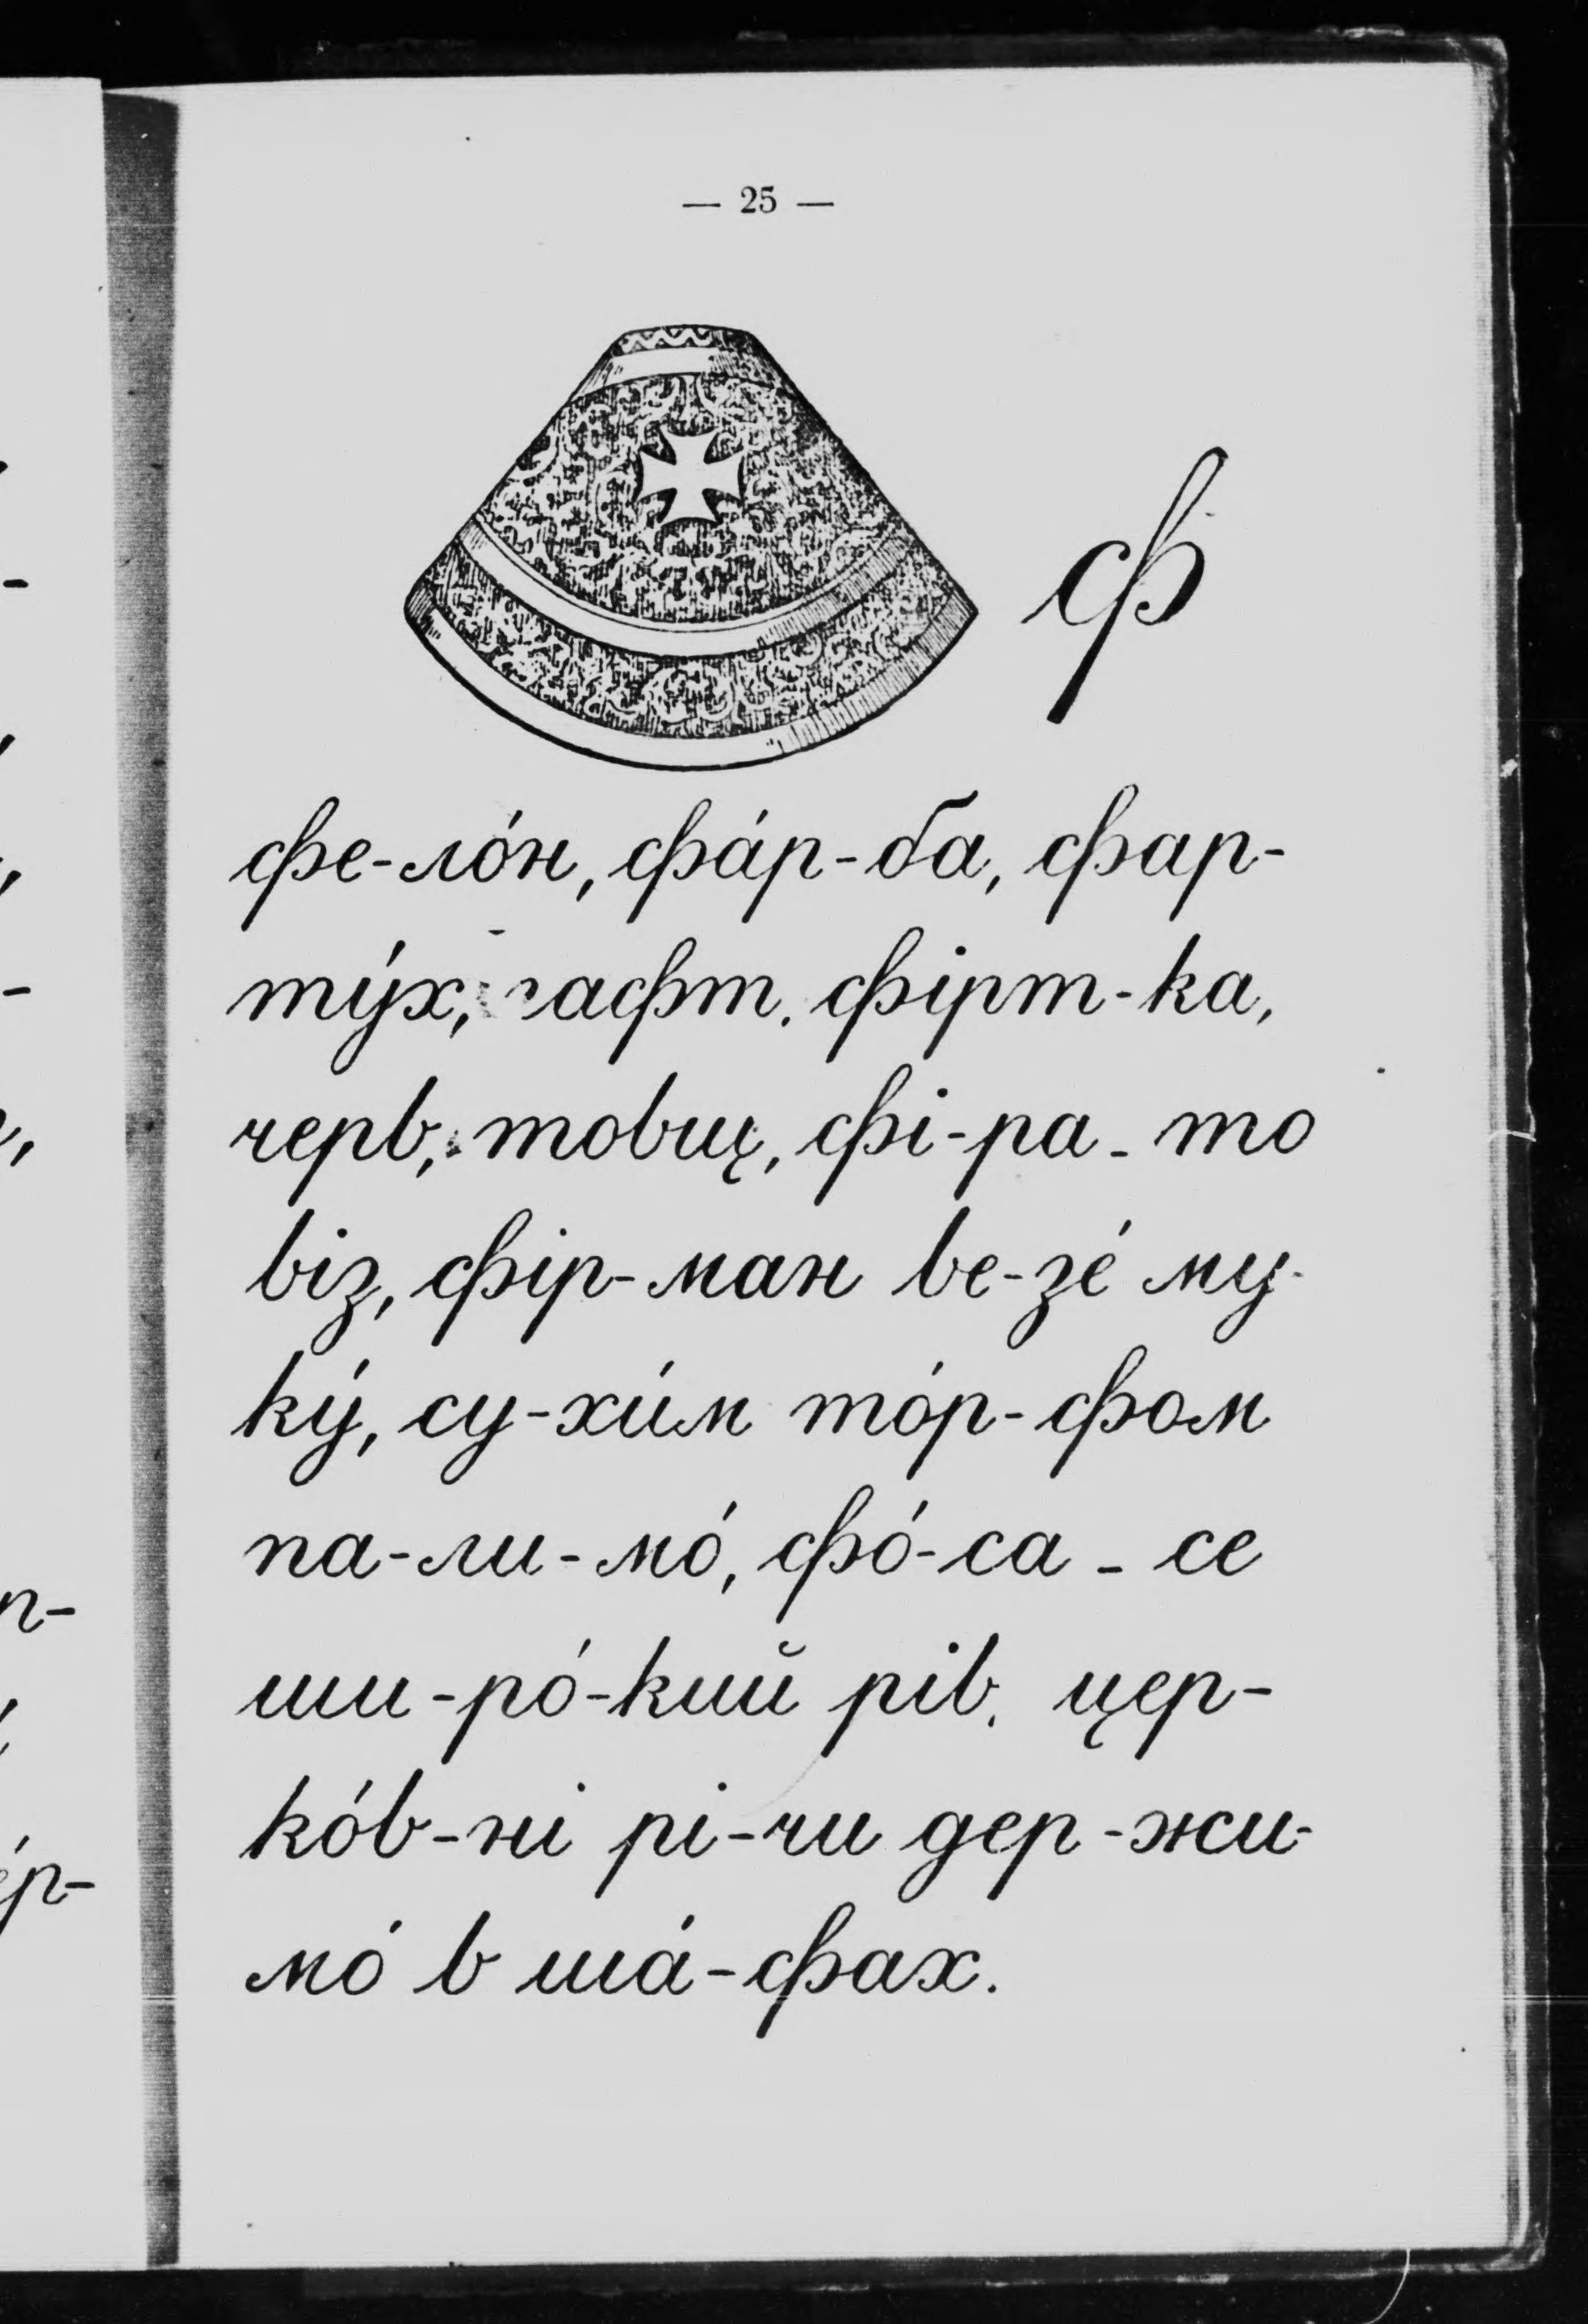 — 25 —
ф
фе-ло́н, фа́р-ба, фар-
ту́х, гафт, фірт-ка,
черв, товщ, фі-ра - то
віз, фір-ман ве-зе́ му-
ку́, су-хи́м то́р-фом
па-ли-мо́, фо́-са - се
ши-ро́-кий рів, цер-
ко́в-ні рі-чи дер-жи-
мо́ в ша́-фах.